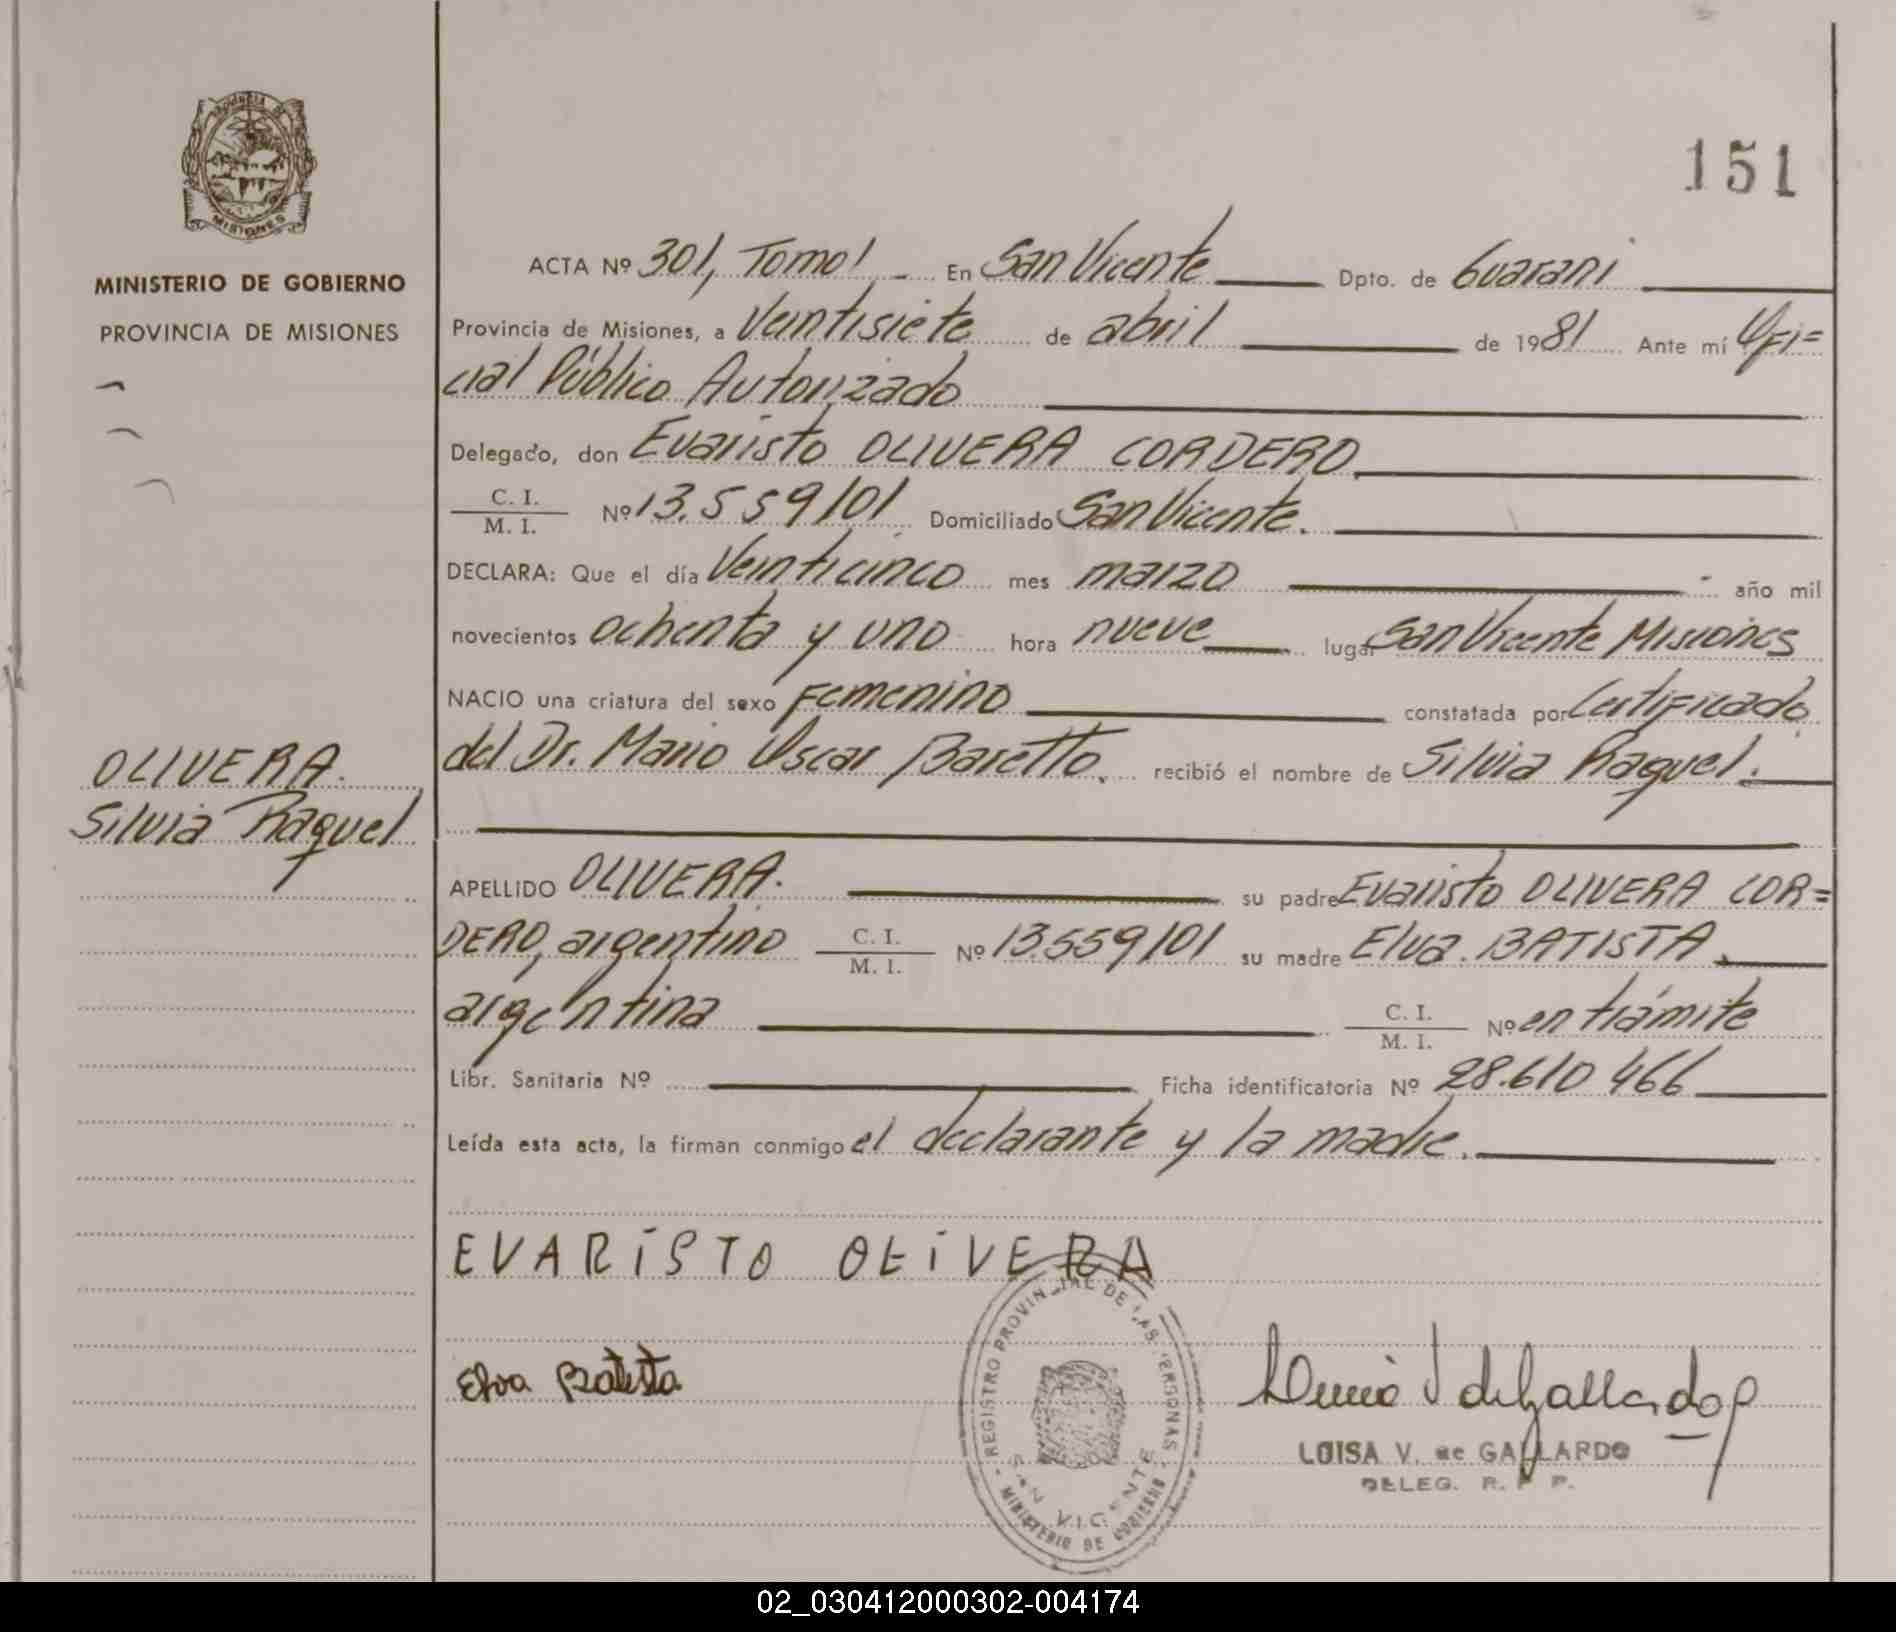 PROVINCIA DE
MISIONES
MINISTERIO DE GOBIERNO
PROVINCIA DE MISIONES
OLIVERA.
Silvia Raquel
151
ACTA Nº 301, Tomo 1 En San Vicente Dpto. de Guarani
Provincia de Misiones, a Veintisiete de abril de 1981 Ante mí Ofi=
cial Público Autorizado
Delegado, don Evaristo OLIVERA CORDERO
C. I. / M. I. Nº 13.559101 Domiciliado San Vicente.
DECLARA: Que el día Veinticinco mes marzo año mil
novecientos ochenta y uno hora nueve lugar San Vicente Misiones
NACIO una criatura del sexo Femenino constatada por Certificado
del Dr. Mario Oscar Baretto. recibió el nombre de Silvia Raquel.
APELLIDO OLIVERA. su padre Evaristo OLIVERA COR=
DERO, argentino C. I. / M. I. Nº 13.559101 su madre Elva BATISTA,
argentina C. I. / M. I. Nº en trámite
Libr. Sanitaria Nº Ficha identificatoria Nº 28.610 466
Leída esta acta, la firman conmigo el declarante y la madre.
EVARISTO OLIVERA
Elva Batista
REGISTRO PROVINCIAL DE LAS PERSONAS
SAN VICENTE
MINISTERIO DE GOBIERNO
V de Gallardo
LUISA V. de GALLARDO
DELEG. R. P. P.
02_030412000302-004174